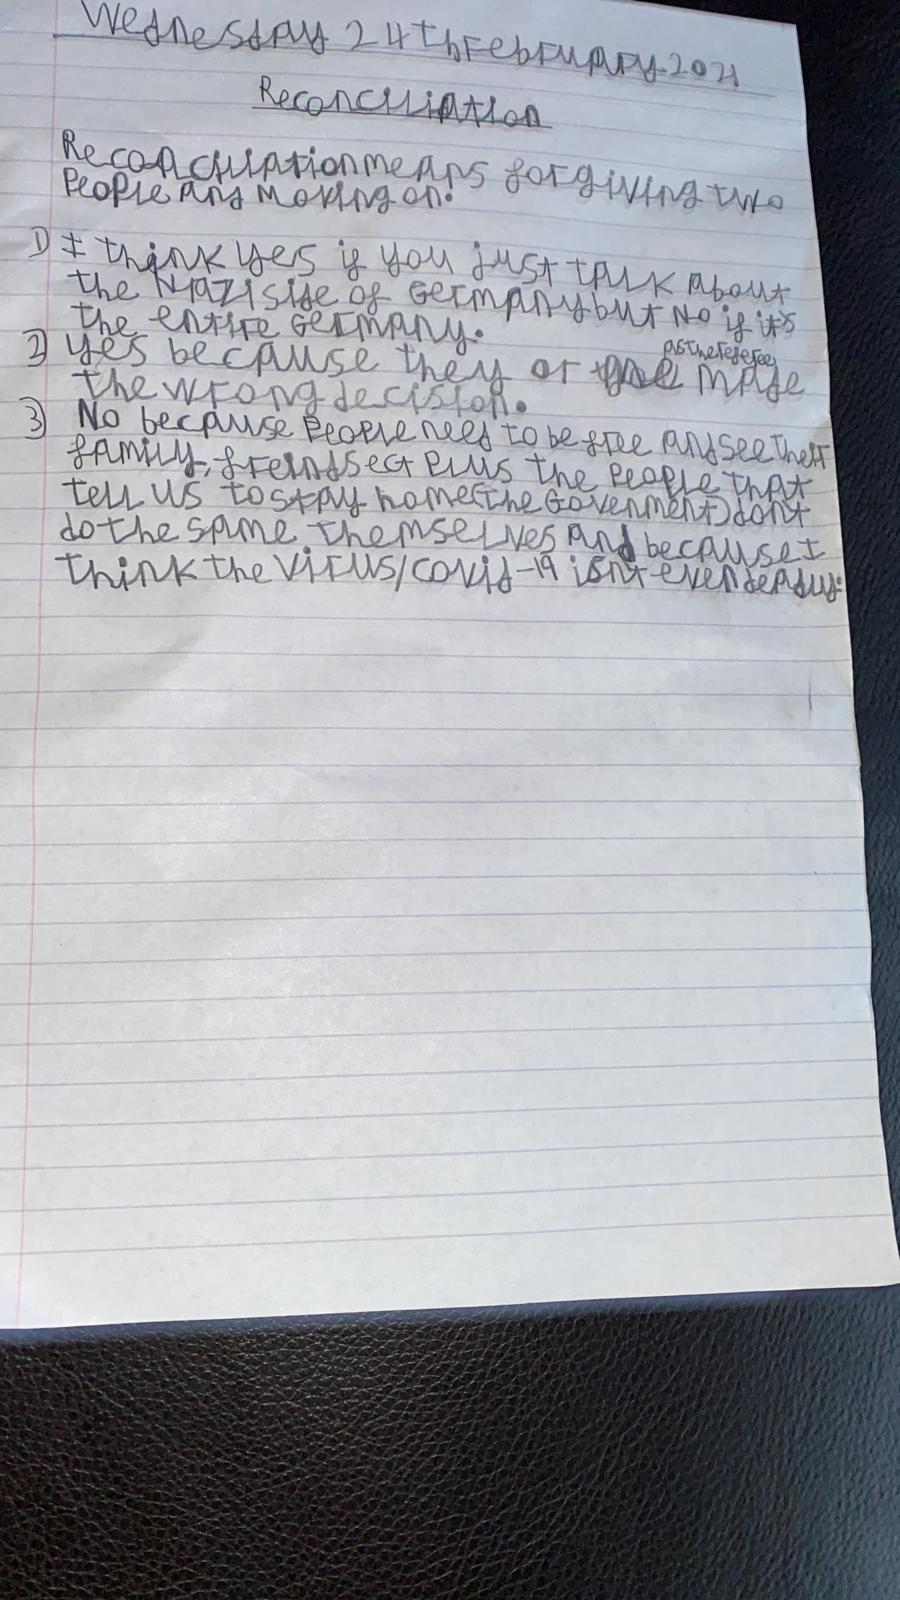 Wednesday 24th February 2021
Reconciliation
Reconciliation means forgiving two
people and moving on.
1) I think yes if you just talk about
the Nazi side of Germany but No if it's
the entire Germany.
2) Yes because they or made
as the referee
the wrong decision.
3) No because people need to be free and see their
family, freinds ect plus the people that
tell us to stay home (the Govenment) dont
do the same themselves and because I
think the virus/covid-19 isnt even deadly.